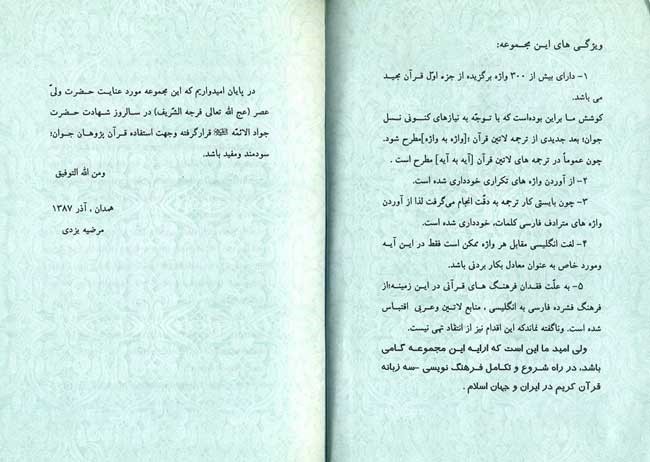 ویژگی های این مجموعه:
۱- دارای بیش از ۳۰۰ واژه برگزیده از جزء اوّل قرآن مجید
می باشد.
کوشش ما براین بوده‌است که با توجّه به نیازهای کنونی نسل
جوان؛ بعد جدیدی از ترجمه لاتین قرآن ؛[واژه به واژه]مطرح شود.
چون عموماً در ترجمه های لاتین قرآن [آیه به آیه] مطرح است .
۲- از آوردن واژه های تکراری خودداری شده است.
۳- چون بایستی کار ترجمه به دقّت انجام می‌گرفت لذا از آوردن
واژه های مترادف فارسی کلمات، خودداری شده است.
۴- لغت انگلیسی مقابل هر واژه ممکن است فقط در این آیه
ومورد خاص به عنوان معادل بکار بردنی باشد.
۵- به علّت فقدان فرهنگ های قرآنی در این زمینه؛از
فرهنگ فشرده فارسی به انگلیسی ، منابع لاتین وعربی اقتباس
شده است. وناگفته نماندکه این اقدام نیز از انتقاد تهی نیست.
ولی امید ما این است که ارایه این مجموعه گامی
باشد، در راه شروع و تکامل فرهنگ نویسی -سه زبانه
قرآن کریم در ایران و جهان اسلام .
در پایان امیدواریم که این مجموعه مورد عنایت حضرت ولیّ
عصر (عج الله تعالی فرجه الشّریف) در سالروز شهادت حضرت
جواد الائمّه قرارگرفته وجهت استفاده قرآن پژوهان جوان؛
سودمند ومفید باشد.
ومن الله التوفیق
همدان , آذر ۱۳۸۷
مرضیه یزدی